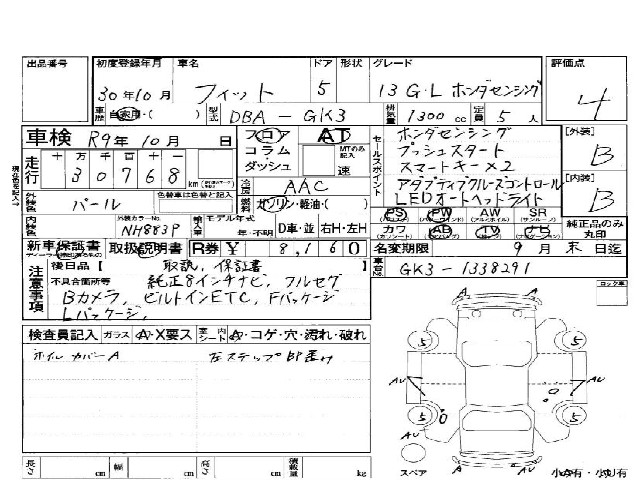 出品番号 初度登録年月 車名 ドア 形状 グレード 評価点
30年10月 フィット 5 13G・L ホンダセンシング 4
車歴 自家用・( ) 型式 DBA-GK3 排気量 1300cc 定員 5人
車検 R9年10月 日 フロア AT ホンダセンシング [外装]
走行 十万千百十一 コラム MTのみ記入 プッシュスタート B
30768 km ダッシュ 速 セールスポイント スマートキー×2
外装色 パール 色替車は色替と記入 冷房 AAC アダプティブクルーズコントロール [内装]
燃料 ガソリン・軽油・( ) LEDオートヘッドライト B
内装色 外装カラーNo. NH883P 輸入車 モデル年式 年・不明 D車・並 右H・左H PS PW AW SR
カワ AB TV ナビ 純正品のみ丸印
新車保証書 取扱説明書 R券 ¥ 8,160 名変期限 9月末日迄
注意事項 後日品[ 取説, 保証書 ] 車台No. GK3-1338291
不具合箇所等 純正8インチナビ, フルセグ ロック車
Bカメラ, ビルトインETC, Fパッケージ
Lパッケージ,
検査員記入 ガラス A・X要ス 室内シート A・コゲ・穴・汚れ・破れ
ホイルカバーA 左ステップ部歪み
A A
5 5
AU AU
5 5
AU
長さ cm 幅 cm 高さ cm 積載量 kg スペア 小A有・小U有